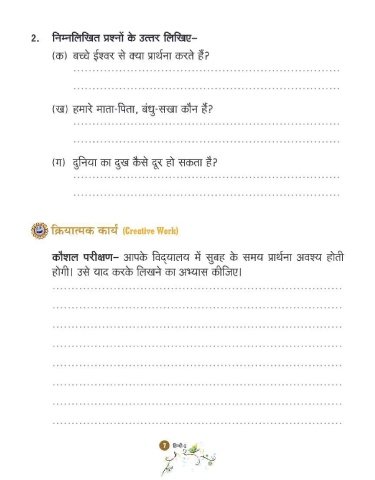 2. निम्नलिखित प्रश्नों के उत्तर लिखिए–
(क) बच्चे ईश्वर से क्या प्रार्थना करते हैं?
(ख) हमारे माता-पिता, बंधु-सखा कौन हैं?
(ग) दुनिया का दुख कैसे दूर हो सकता है?
क्रियात्मक कार्य (Creative Work)
कौशल परीक्षण– आपके विद्यालय में सुबह के समय प्रार्थना अवश्य होती
होगी। उसे याद करके लिखने का अभ्यास कीजिए।
7 हिन्दी